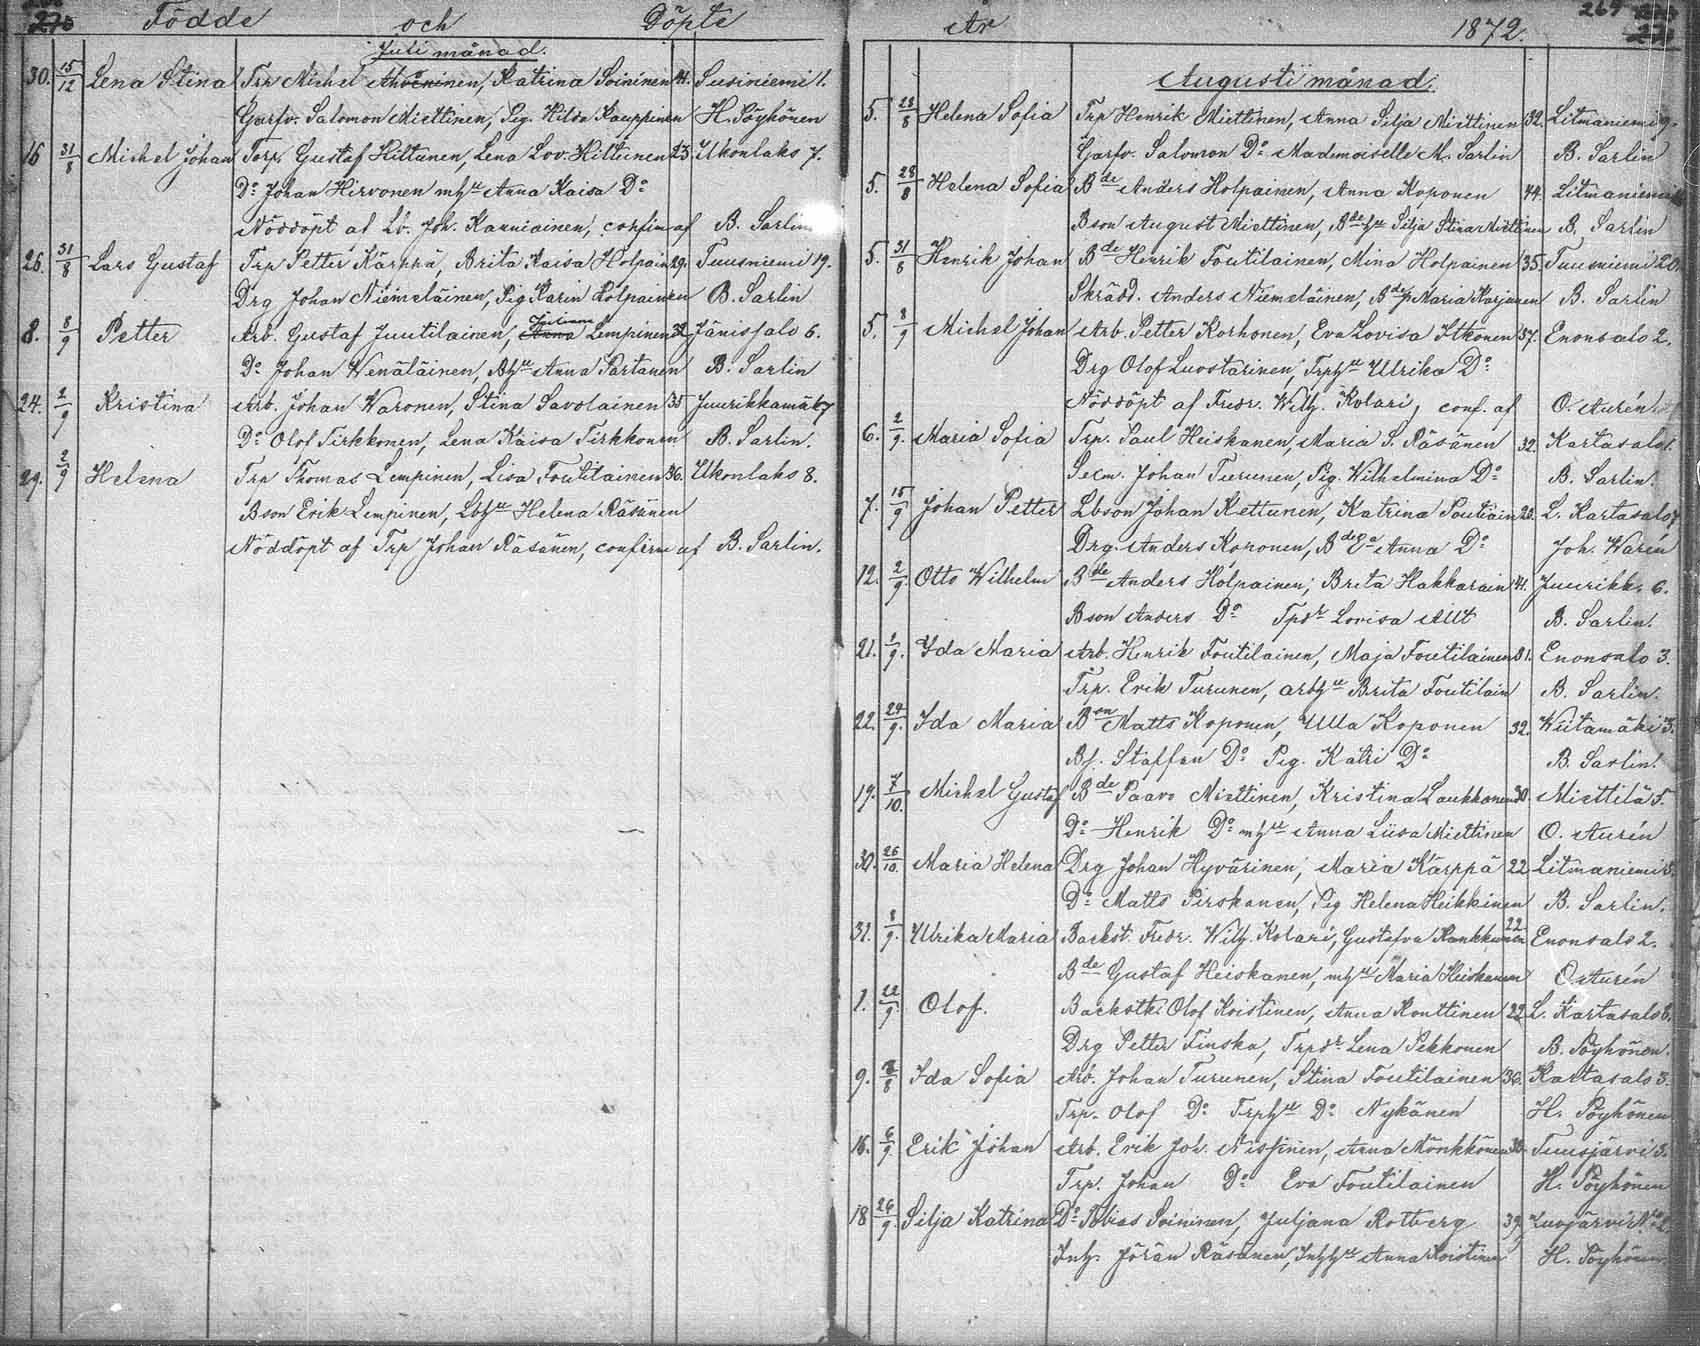 Födde och Döpte
Juli månad.
30. 15/12 Lena Stina Trp Michel Ahvéninen, Katrina Soininen 41. Susiniemi 1.
Garfv. Salomon Miettinen, Pig. Hilda Kauppinen H. Pöyhönen
16 31/8 Michel Johan Torp. Gustaf Hiltunen, Lena Lov. Hiltunen 23. Ukonlaks 7.
Do Johan Hirvonen mhu Anna Kaisa Do
Nöddöpt af Lb. Joh. Kauniainen, confirm af B. Sarlin
26. 31/8 Lars Gustaf Trp Petter Kärppä, Brita Kaisa Holpain 29. Tuusniemi 19.
Drg Johan Niemeläinen, Pig Karin Holpainen B. Sarlin
8. 8/9 Petter Arb. Gustaf Juutilainen, Juliana Lempinen 32 Jänissalo 6.
Do Johan Wenäläinen, Bhu Anna Partanen B. Sarlin
24. 2/9 Kristina Arb. Johan Waronen, Stina Savolainen 35 Juurikkamäki 7
Do Olof Tirkkonen, Lena Kaisa Tirkkonen B. Sarlin.
29. 2/9 Helena Trp Thomas Lempinen, Lisa Toutilainen 36. Ukonlaks 8.
Bson Erik Lempinen, Lbhu Helena Räsänen
Nöddöpt af Trp Johan Räsänen, confirm af B. Sarlin.
År 1872. 269
Augusti månad.
5. 28/8 Helena Sofia Trp Henrik Miettinen, Anna Silja Miettinen 32. Litmaniemi 9.
Garfv. Salomon Do Mademoiselle M. Sarlin B. Sarlin
5. 28/8 Helena Sofia Bde Anders Holpainen, Anna Koponen 44. Litmaniemi
Bson August Miettinen, Bdehu Silja Stina Miettinen B. Sarlin
5. 31/8 Henrik Johan Bde Henrik Toutilainen, Mina Holpainen 35. Tuusniemi 20.
Skrädd. Anders Niemeläinen, Bdep Maria Karjunen B. Sarlin
5. 8/9 Michel Johan Arb. Petter Korhonen, Eva Lovisa Itkonen 37. Enonsalo 2.
Drg Olof Luostarinen, Trphu Ulrika Do
Nöddöpt af Fredr. Wilh. Kolari, conf. af O. Aurén.
6. 2/9. Maria Sofia Trp. Paul Heiskanen, Maria S. Räsänen 32. Kartasalo 1.
Sexm. Johan Turunen, Pig. Wilhelmina Do B. Sarlin.
7. 15/9 Johan Petter Lbson Johan Kettunen, Katrina Poutiain 23. L. Kartasalo 7
Drg. Anders Koponen, Bdeea Anna Do Joh. Warén
12. 2/9. Otto Wilhelm Bde Anders Holpainen, Brita Hakkarain 41. Juurikk. 6.
Bson Anders Do Tpdr Lovisa Allt B. Sarlin.
21. 1/9. Ida Maria Arb. Henrik Toutilainen, Maja Toutilainen 31. Enonsalo 3.
Trp. Erik Turunen, arbhu Brita Toutilain B. Sarlin.
22. 29/9. Ida Maria Bon Matts Koponen, Ulla Koponen 32. Wiitamäki 3.
Bf. Staffen Do Pig. Katri Do B. Sarlin.
19. 7/10. Michel Gustaf Bde Paavo Miettinen, Kristina Laukkanen 30. Miettilä 5.
Do Henrik Do mhu Anna Liisa Miettinen O. Aurén
30. 26/10. Maria Helena Drg Johan Hyvärinen, Maria Kärppä 22. Litmaniemi 5.
Do Matts Pirskanen, Pig Helena Heikkinen B. Sarlin.
31. 8/9. Ulrika Maria Backst. Fredr. Wilh. Kolari, Gustafva Rankkunen 22 Enonsalo 2.
Bde Gustaf Heiskanen, mhu Maria Heiskanen O. Aurén
1. 22/9 Olof. Backstk. Olof Koistinen, Anna Konttinen 22 L. Kartasalo 6.
Drg Petter Finska, Trpdr Lena Pekkonen B. Pöyhönen.
9. /8 Ida Sofia Arb. Johan Turunen, Stina Toutilainen 36. Kartasalo 3.
Trp. Olof Do Trphu Do Nykänen H. Pöyhönen
16. 6/9 Erik Johan Arb. Erik Joh. Nissinen, Anna Mönkkönen 30. Tuusjärvi 3.
Trp. Johan Do Eva Toutilainen H. Pöyhönen
18 26/9. Silja Katrina Do Tobias Soininen, Juljana Rotberg 39. Tuusjärvi No 2.
Inh. Jöran Räsänen, Inhhu Anna Koistinen H. Pöyhönen.